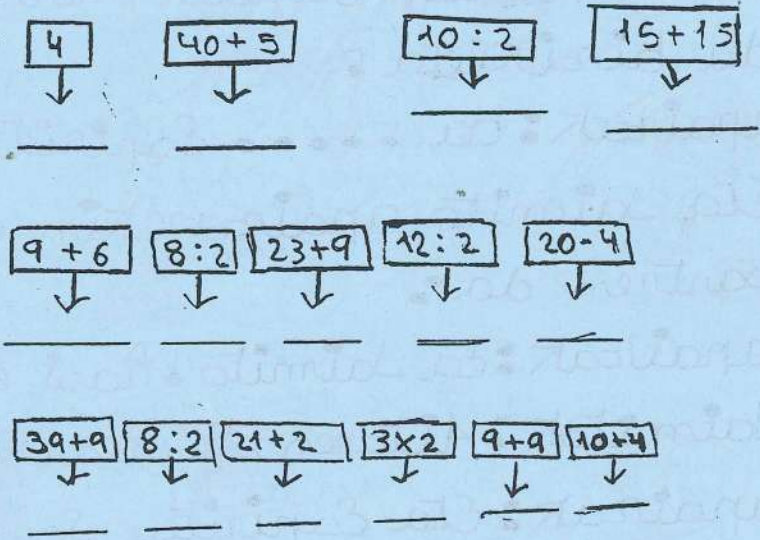 4 40+5 10:2 15+15
9+6 8:2 23+9 12:2 20-4
39+9 8:2 21+2 3x2 9+9 10+4